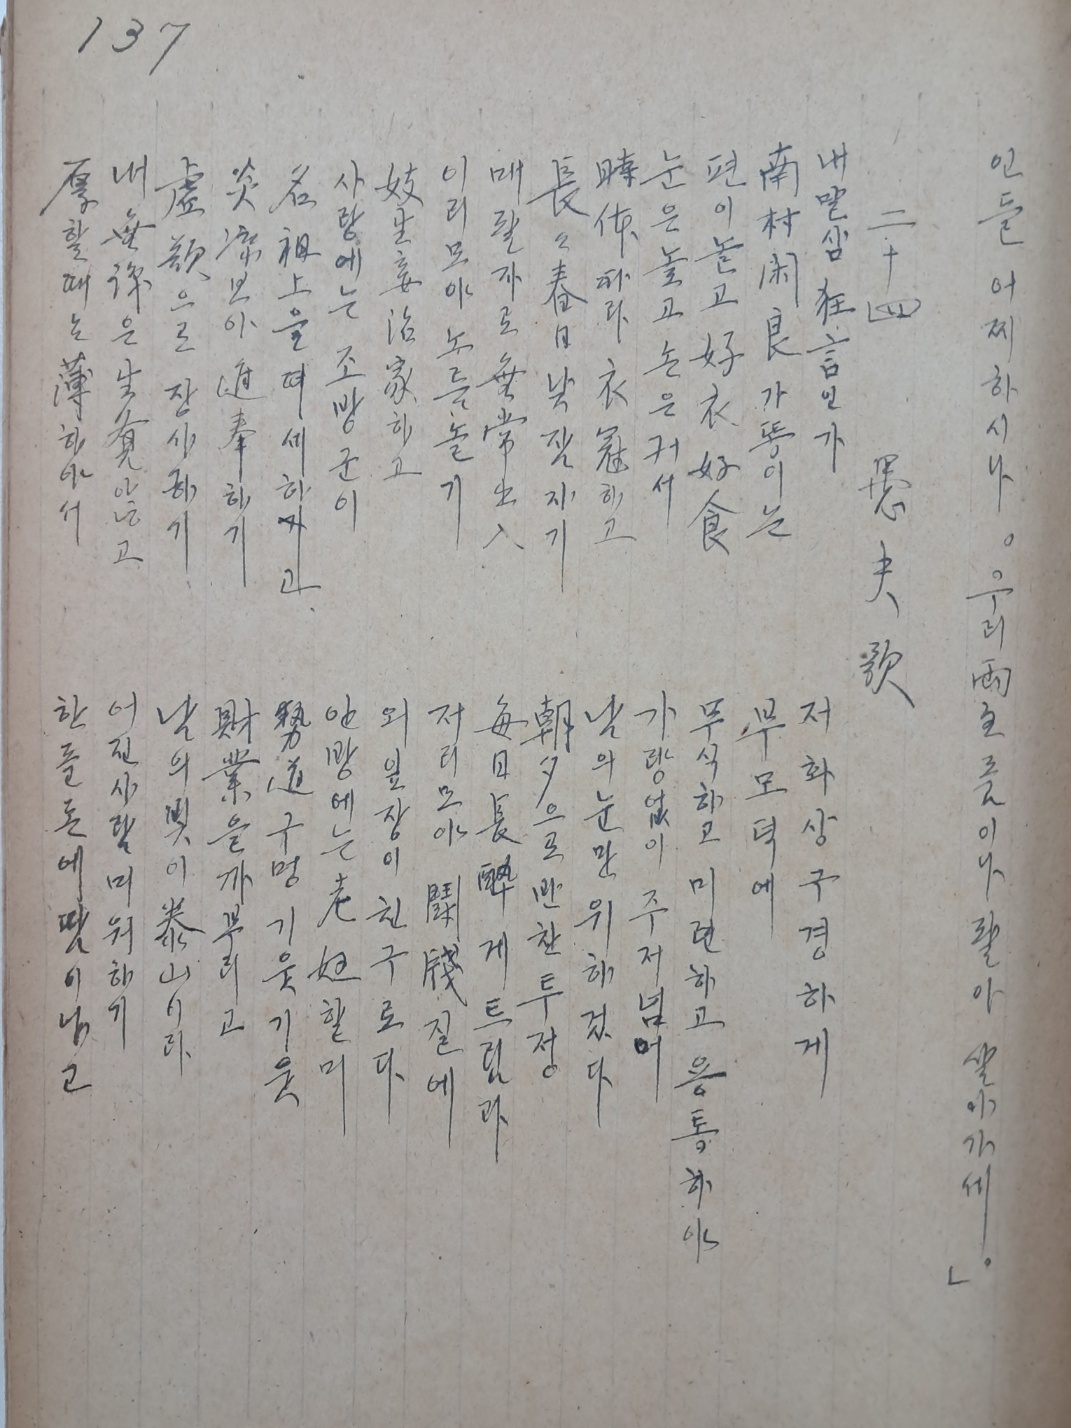 137
인들 어찌하시나。우리 両主 품이나 팔아 살아가세。」
二十四 愚夫歌
내말삼 狂言인가 저 화상 구경하게
南村 閑良 가똥이는 부모덕에
편이놀고 好衣好食 무식하고 미련하고 용통하야
눈은놉고 손은커서 가량없이 주저넘어
時体따라 衣冠하고 남의눈만 위하것다
長々春日 낮잠자기 朝夕으로 반찬투정
매팔자로 無常出入 每日長醉 게트림과
이리모아 노름놀기 저리모아 鬪牋질에
妓生妾治家하고 외입장이 친구로다
사랑에는 조방군이 안방에는 老妪할미
名祖上을 떠세하기과 勢道구멍 기웃기웃
炎凉보아 進奉하기 財業을 까부리고
虛欲으로 장사하기 남의 빗이 泰山이라
내 無識은 生覺않고 어진사람 미워하기
厚할때는 薄하야서 한 푼돈에 땀이나고